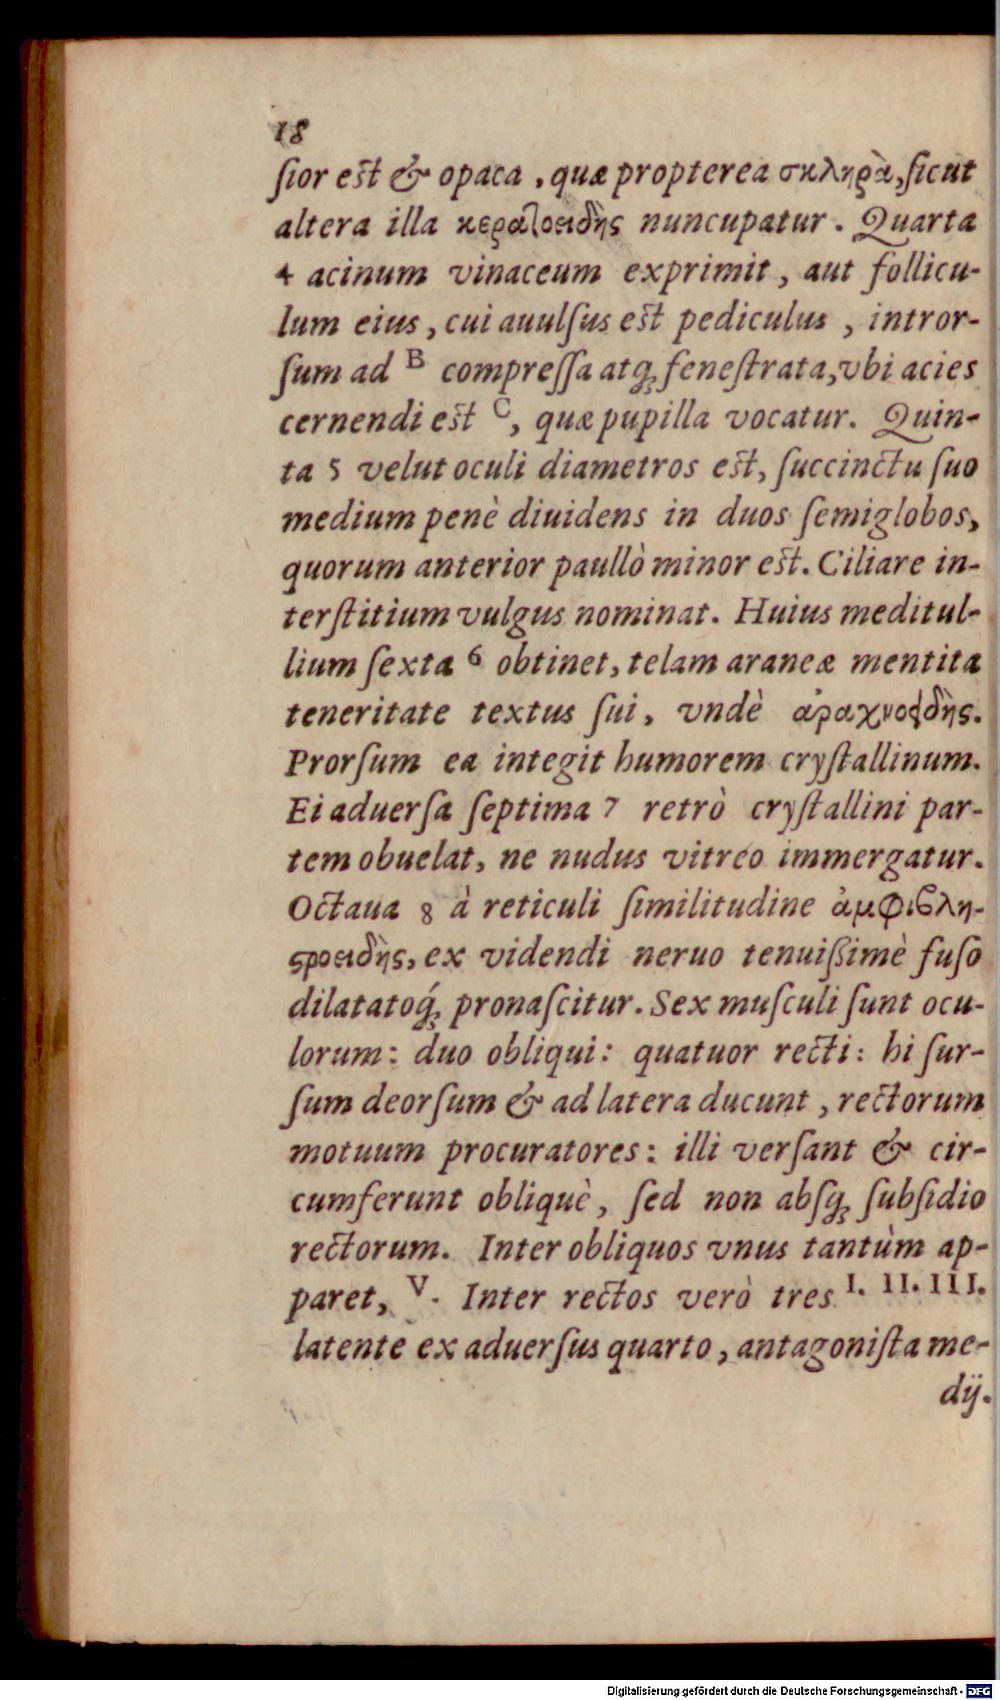 18
ſior est & opaca, quæ propterea σκληρὰ, ſicut
altera illa κερατοειδὴς nuncupatur. Quarta
4 acinum vinaceum exprimit, aut follicu-
lum eius, cui auulſus est pediculus, intror-
ſum ad B compreſſa atq; feneſtrata, vbi acies
cernendi est C, quæ pupilla vocatur. Quin-
ta 5 velut oculi diametros est, ſuccinctu ſuo
medium penè diuidens in duos ſemiglobos,
quorum anterior paullò minor est. Ciliare in-
terſtitium vulgus nominat. Huius meditul-
lium ſexta 6 obtinet, telam araneæ mentita
teneritate textus ſui, vndè ἀραχνοειδὴς.
Prorſum ea integit humorem cryſtallinum.
Ei aduerſa ſeptima 7 retrò cryſtallini par-
tem obuelat, ne nudus vitreo immergatur.
Octaua 8 à reticuli ſimilitudine ἀμφιβλη-
ϛροειδὴς, ex videndi neruo tenuißimè fuſo
dilatatoq́; pronaſcitur. Sex muſculi ſunt ocu-
lorum: duo obliqui: quatuor recti: hi ſur-
ſum deorſum & ad latera ducunt, rectorum
motuum procuratores: illi verſant & cir-
cumferunt obliquè, ſed non abſq; ſubſidio
rectorum. Inter obliquos vnus tantùm ap-
paret, V. Inter rectos verò tres I. II. III.
latente ex aduerſus quarto, antagoniſta me-
dij.
Digitalisierung gefördert durch die Deutsche Forschungsgemeinschaft - DFG